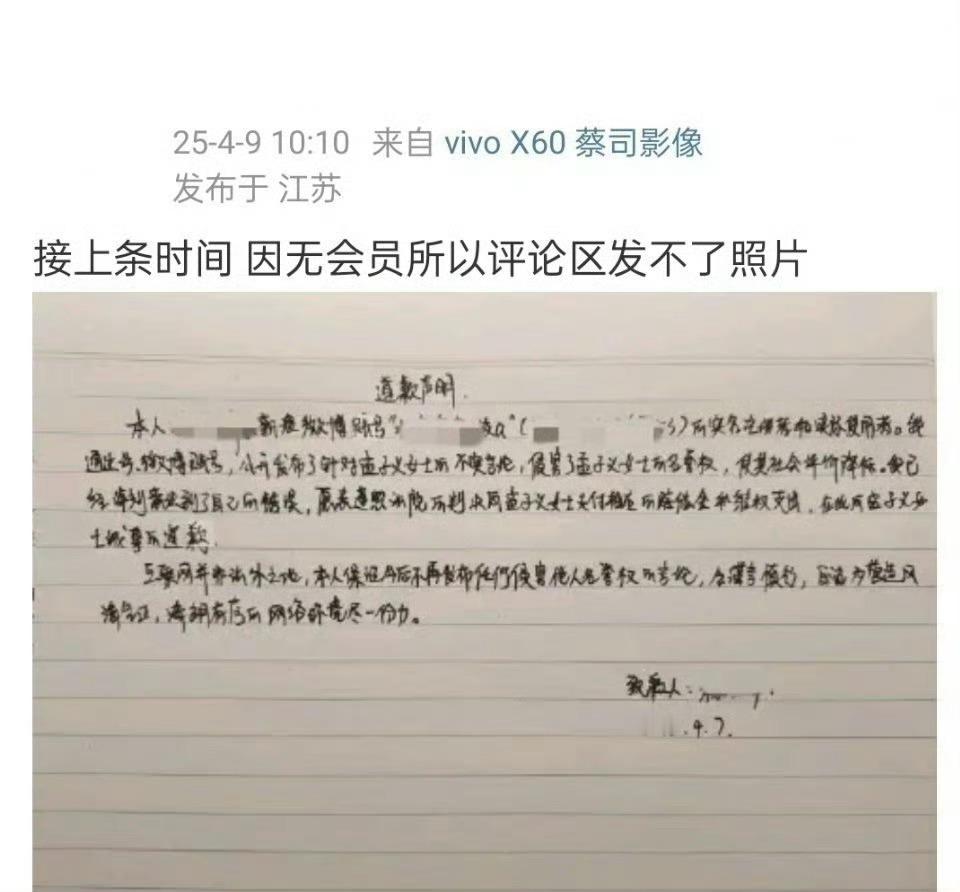 25-4-9 10:10 来自 vivo X60 蔡司影像
发布于 江苏
接上条时间 因无会员所以评论区发不了照片
道歉声明.
本人 新浪微博账号" a"( )的实名注册者和实际使用者。我
通过 微博账号，公开发布了针对孟子义女士的不实言论，侵害了孟子义女士的名誉权，使其社会评价降低。我已
经深刻意识到了自己的错误，愿意遵照法院的判决向孟子义女士支付相应的赔偿金和维权支出，在此向孟子义女
士诚挚的道歉.
互联网并非法外之地，本人保证今后不再发布任何侵害他人名誉权的言论，会谨言慎行， 为营造风
清气正， 有序的网络环境尽一份力。
致歉人：
.4.7.